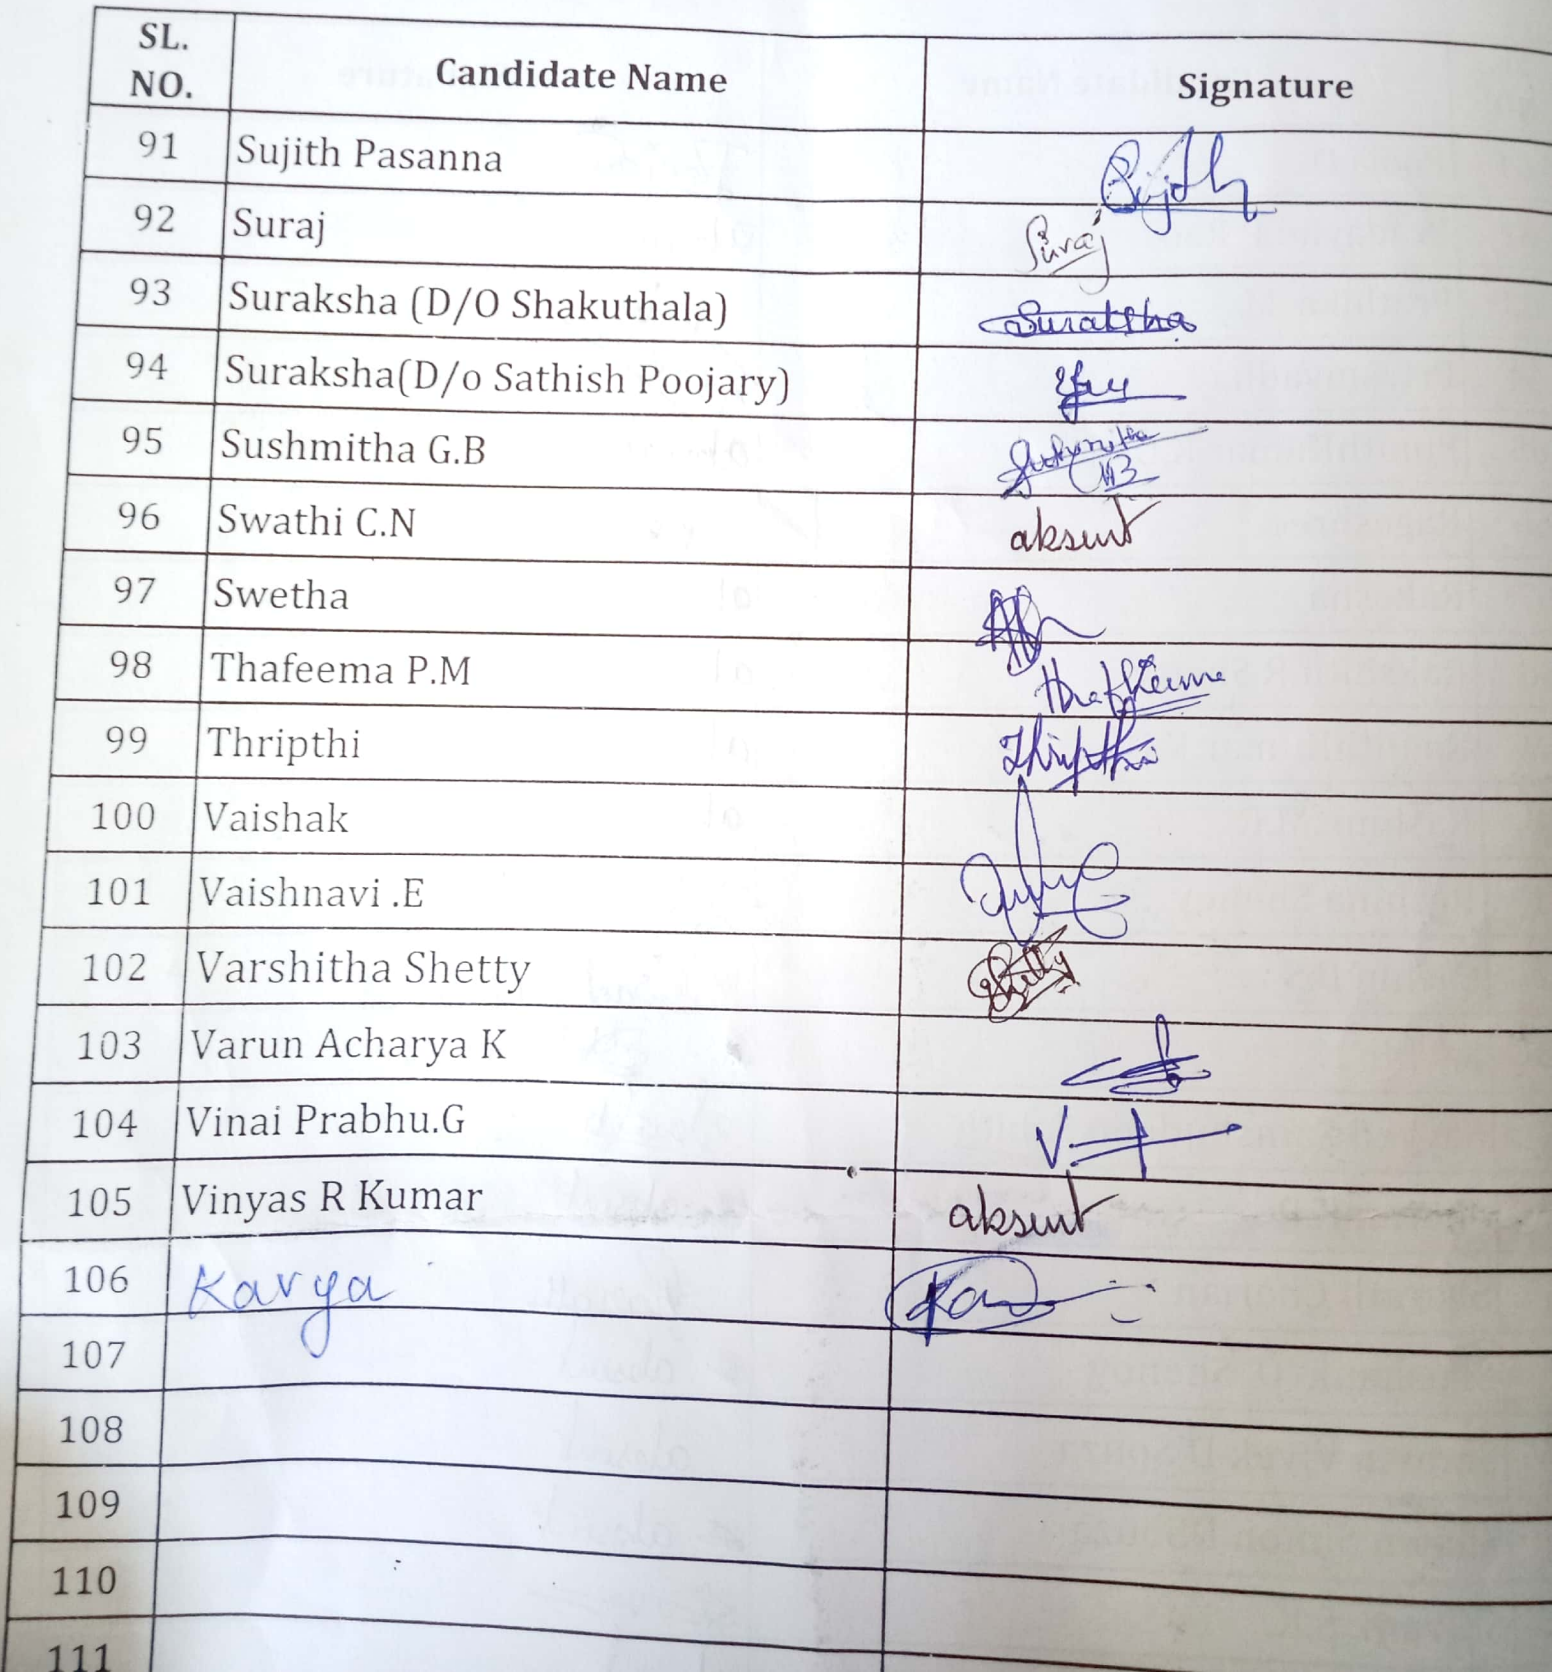 SL. NO. Candidate Name Signature
91 Sujith Pasanna Sujith
92 Suraj Suraj
93 Suraksha (D/O Shakuthala) Suraksha
94 Suraksha(D/o Sathish Poojary)
95 Sushmitha G.B
96 Swathi C.N absent
97 Swetha
98 Thafeema P.M
99 Thripthi Thripthi
100 Vaishak
101 Vaishnavi .E
102 Varshitha Shetty Shetty
103 Varun Acharya K
104 Vinai Prabhu.G
105 Vinyas R Kumar absent
106 Kavya
107
108
109
110
111